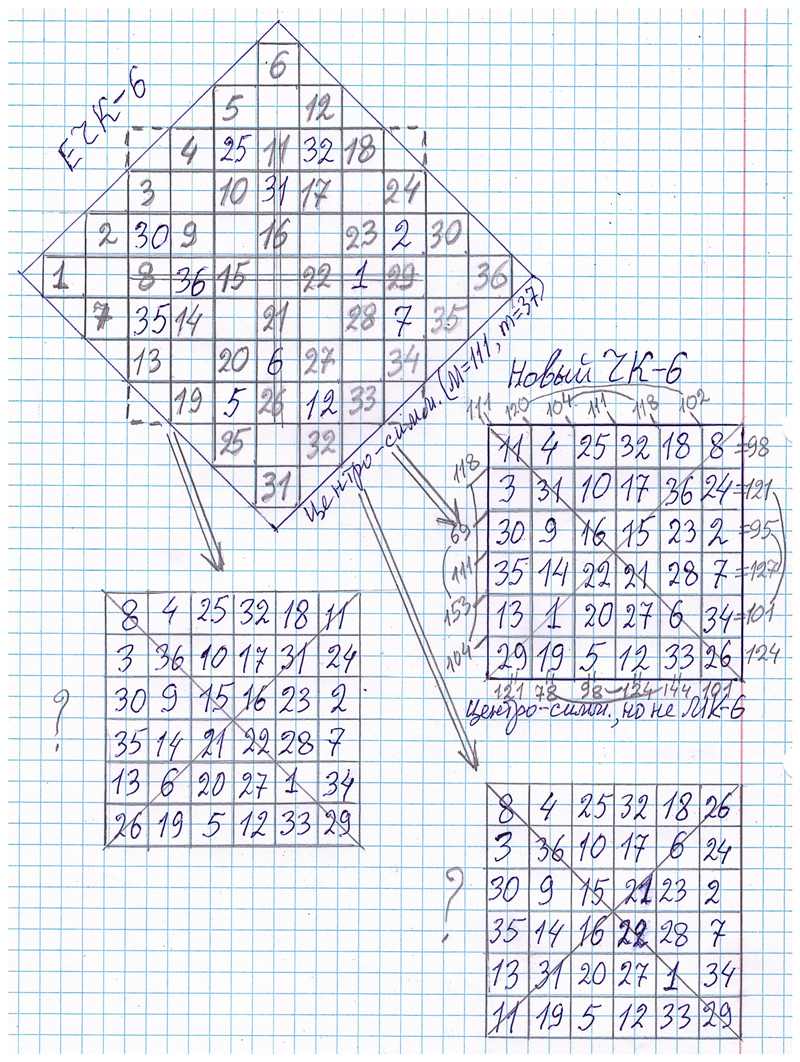 ЕЧК-6
6
5 12
4 25 11 32 18
3 10 31 17 24
2 30 9 16 23 2 30
1 8 36 15 22 1 29 36
7 35 14 21 28 7 35
13 20 6 27 34
19 5 26 12 33
25 32
31
Центро-симм. (М=111, m=37)
Новый ЧК-6
111 120 104 111 118 102
11 4 25 32 18 8 =98
118 3 31 10 17 36 24 =121
69 30 9 16 15 23 2 =95
111 35 14 22 21 28 7 =127
153 13 1 20 27 6 34 =101
104 29 19 5 12 33 26 124
121 78 98 124 144 101
Центро-симм., но не МК-6
?
8 4 25 32 18 11
3 36 10 17 31 24
30 9 15 16 23 2
35 14 21 22 28 7
13 6 20 27 1 34
26 19 5 12 33 29
?
8 4 25 32 18 26
3 36 10 17 6 24
30 9 15 21 23 2
35 14 16 22 28 7
13 31 20 27 1 34
11 19 5 12 33 29